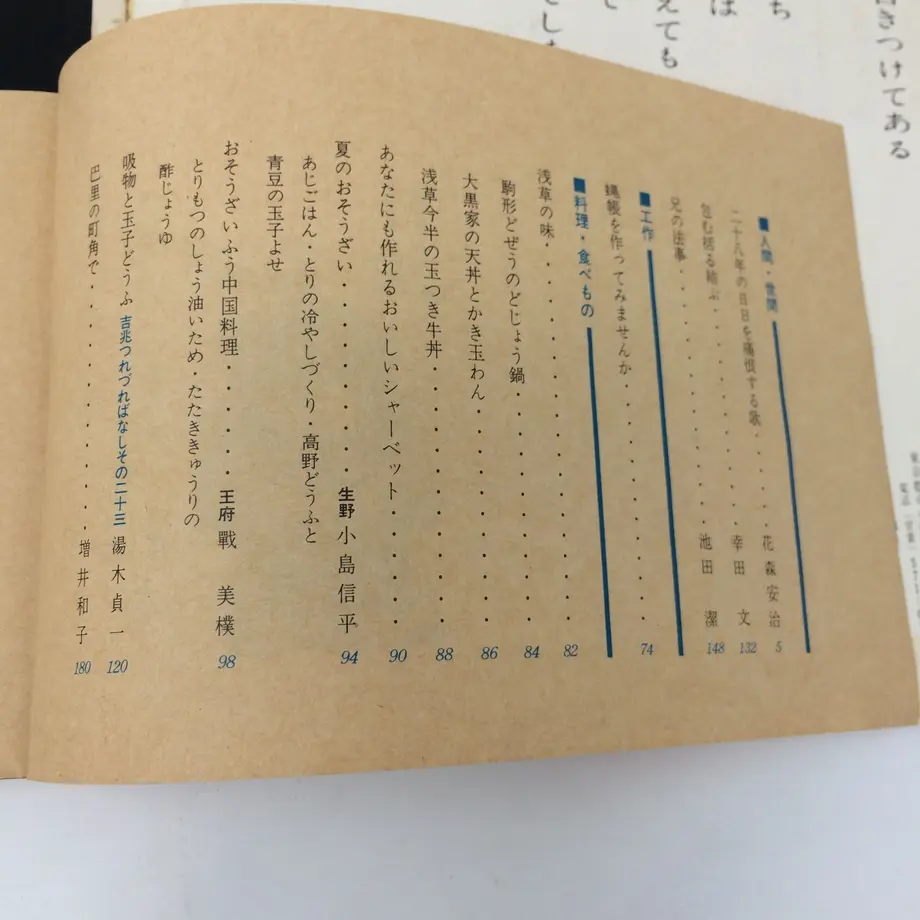 ■人間・世間
二十八年の日日を痛恨する歌・・・・・花森安治 5
包む括る結ぶ・・・・・・・・・・幸田 文 132
兄の法事・・・・・・・・・・・・池田 潔 148
■工作
縄帳を作ってみませんか・・・・・・・・74
■料理・食べもの
浅草の味・・・・・・・・・・・・・82
駒形どぜうのどじょう鍋・・・・・・・・84
大黒家の天丼とかき玉わん・・・・・・・86
浅草今半の玉つき牛丼・・・・・・・・・88
あなたにも作れるおいしいシャーベット・・・・・90
夏のおそうざい・・・・・・・・・生野 小島信平 94
あじごはん・とりの冷やしづくり・高野どうふと
青豆の玉子よせ
おそうざいふう中国料理・・・・・王府 戰 美樸 98
とりもつのしょう油いため・たたききゅうりの
酢じょうゆ
吸物と玉子どうふ 吉兆つれづればなしその二十三 湯木貞一 120
巴里の町角で・・・・・・・・・・・増井和子 180
きつけてある
ち
は
えても
て
でした